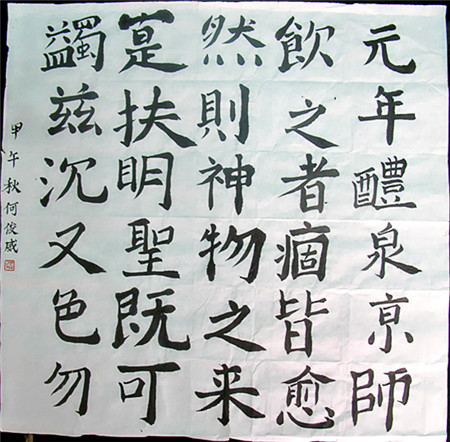 元年醴泉京師
飲之者痼皆愈
然則神物之来
寔扶明聖既可
蠲兹沉又色勿
甲午秋何俊威